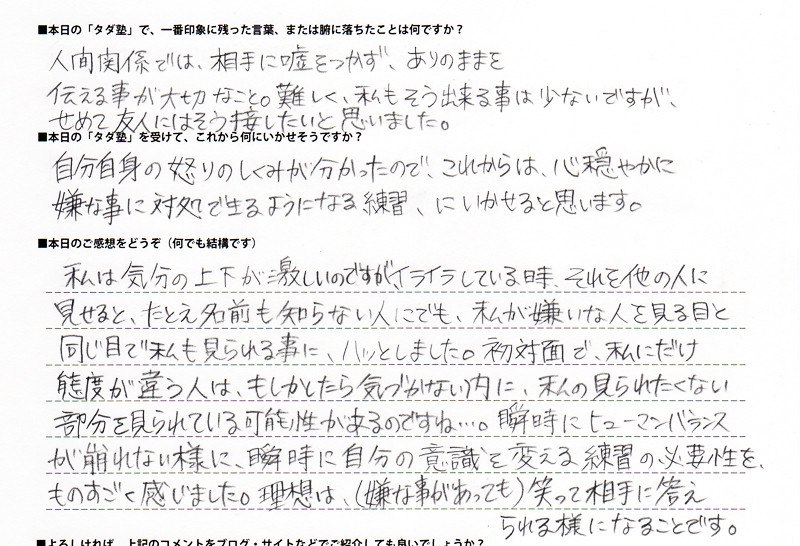 ■本日の「タダ塾」で、一番印象に残った言葉、または腑に落ちたことは何ですか？
人間関係では、相手に嘘をつかず、ありのままを
伝える事が大切なこと。難しく、私もそう出来る事は少ないですが、
せめて友人にはそう接したいと思いました。
■本日の「タダ塾」を受けて、これから何にいかせそうですか？
自分自身の怒りのしくみが分かったので、これからは、心穏やかに
嫌な事に対処で生るようになる練習、にいかせると思います。
■本日のご感想をどうぞ（何でも結構です）
私は気分の上下が激しいのですが、イライラしている時、それを他の人に
見せると、たとえ名前も知らない人にでも、私が嫌いな人を見る目と
同じ目で私も見られる事に、ハッとしました。初対面で、私にだけ
態度が違う人は、もしかとたら気づかない内に、私の見られたくない
部分を見られている可能性があるのですね…。瞬時にヒューマンバランス
が崩れない様に、瞬時に自分の意識を変える練習の必要性を、
ものすごく感じました。理想は、(嫌な事があっても)笑って相手に答え
られる様になることです。
■よろしければ、上記のコメントをブログ・サイトなどでご紹介しても良いでしょうか？